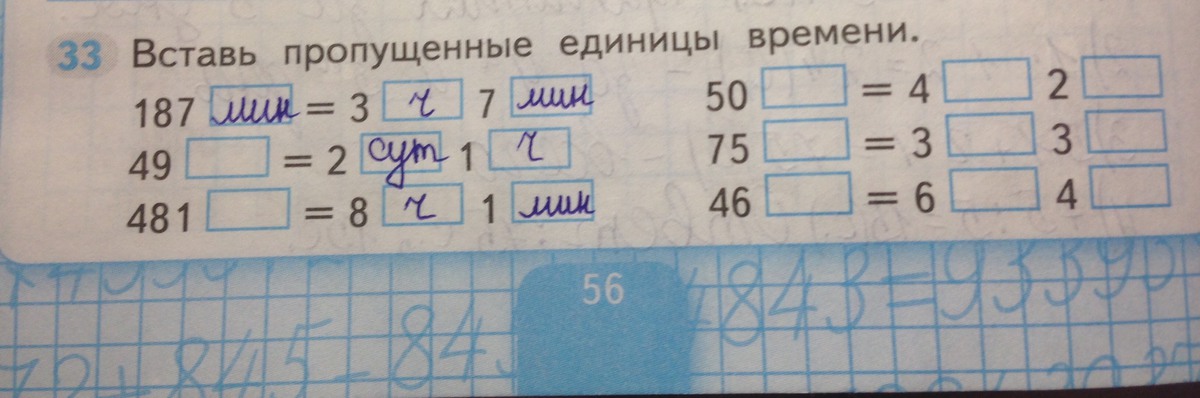 33 Вставь пропущенные единицы времени.
187 мин = 3 ч 7 мин
49 = 2 сут 1 ч
481 = 8 ч 1 мин
50 = 4 2
75 = 3 3
46 = 6 4
56
+843=93390
+845-84